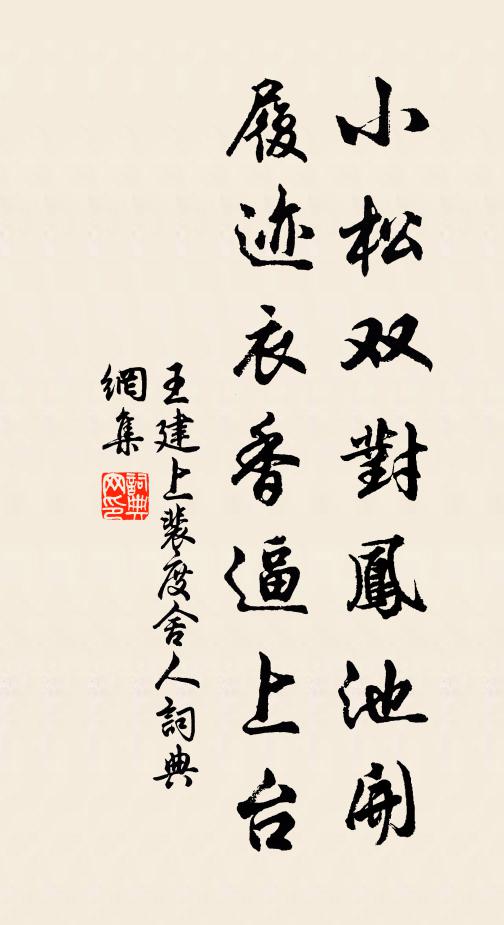 小松双對鳳池開
履迹衣香逼上台
王建上裴度舍人詞典
網集
詞典
网印